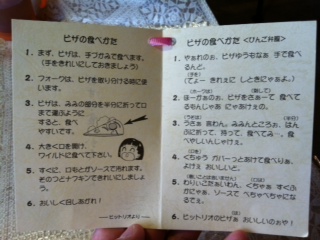 ピザの食べかた
1. まず、ピザは、手づかみで食べます。
(手をきれいにしておきましょう)
2. フォークは、ピザを取り分ける時に使
います。
3. ピザは、みみの部分を半分に折って口
まで運ぶように
すると、食べ
やすいです。
4. 大きく口を開け、
ワイルドに食べて下さい。
5. すぐに、口もとがソースで汚れます。
そのつどナフキンできれいにしましょ
う。
6. おいしく召しあがれ！
――ピットリオより――
ピザの食べかた
1. やぁれのぉ、ピザゆうもなぁ 手で食べ
るんと。
(手を)
(てょー きれぇに しときにゃぁよ。)
(フォークは)
2. ほーがぁのぉ、ピザをさぁーて 食べて
3. うさぁ 言わん。みみんところぉ、はん
ぶに折って、持って 食べてみー。食べ
やしいんじゃけぇ。
4. くちゅう ガバーっとあけて食べりゃあ、
よけぇ おいしいと。
5. わりぃこたぁいわん。くちゃぁ すぐふ
がにゃぁ、ソースで べちゃべちゃにな
るで。
6. ピットリオのピザぁ おいしいのぉや！